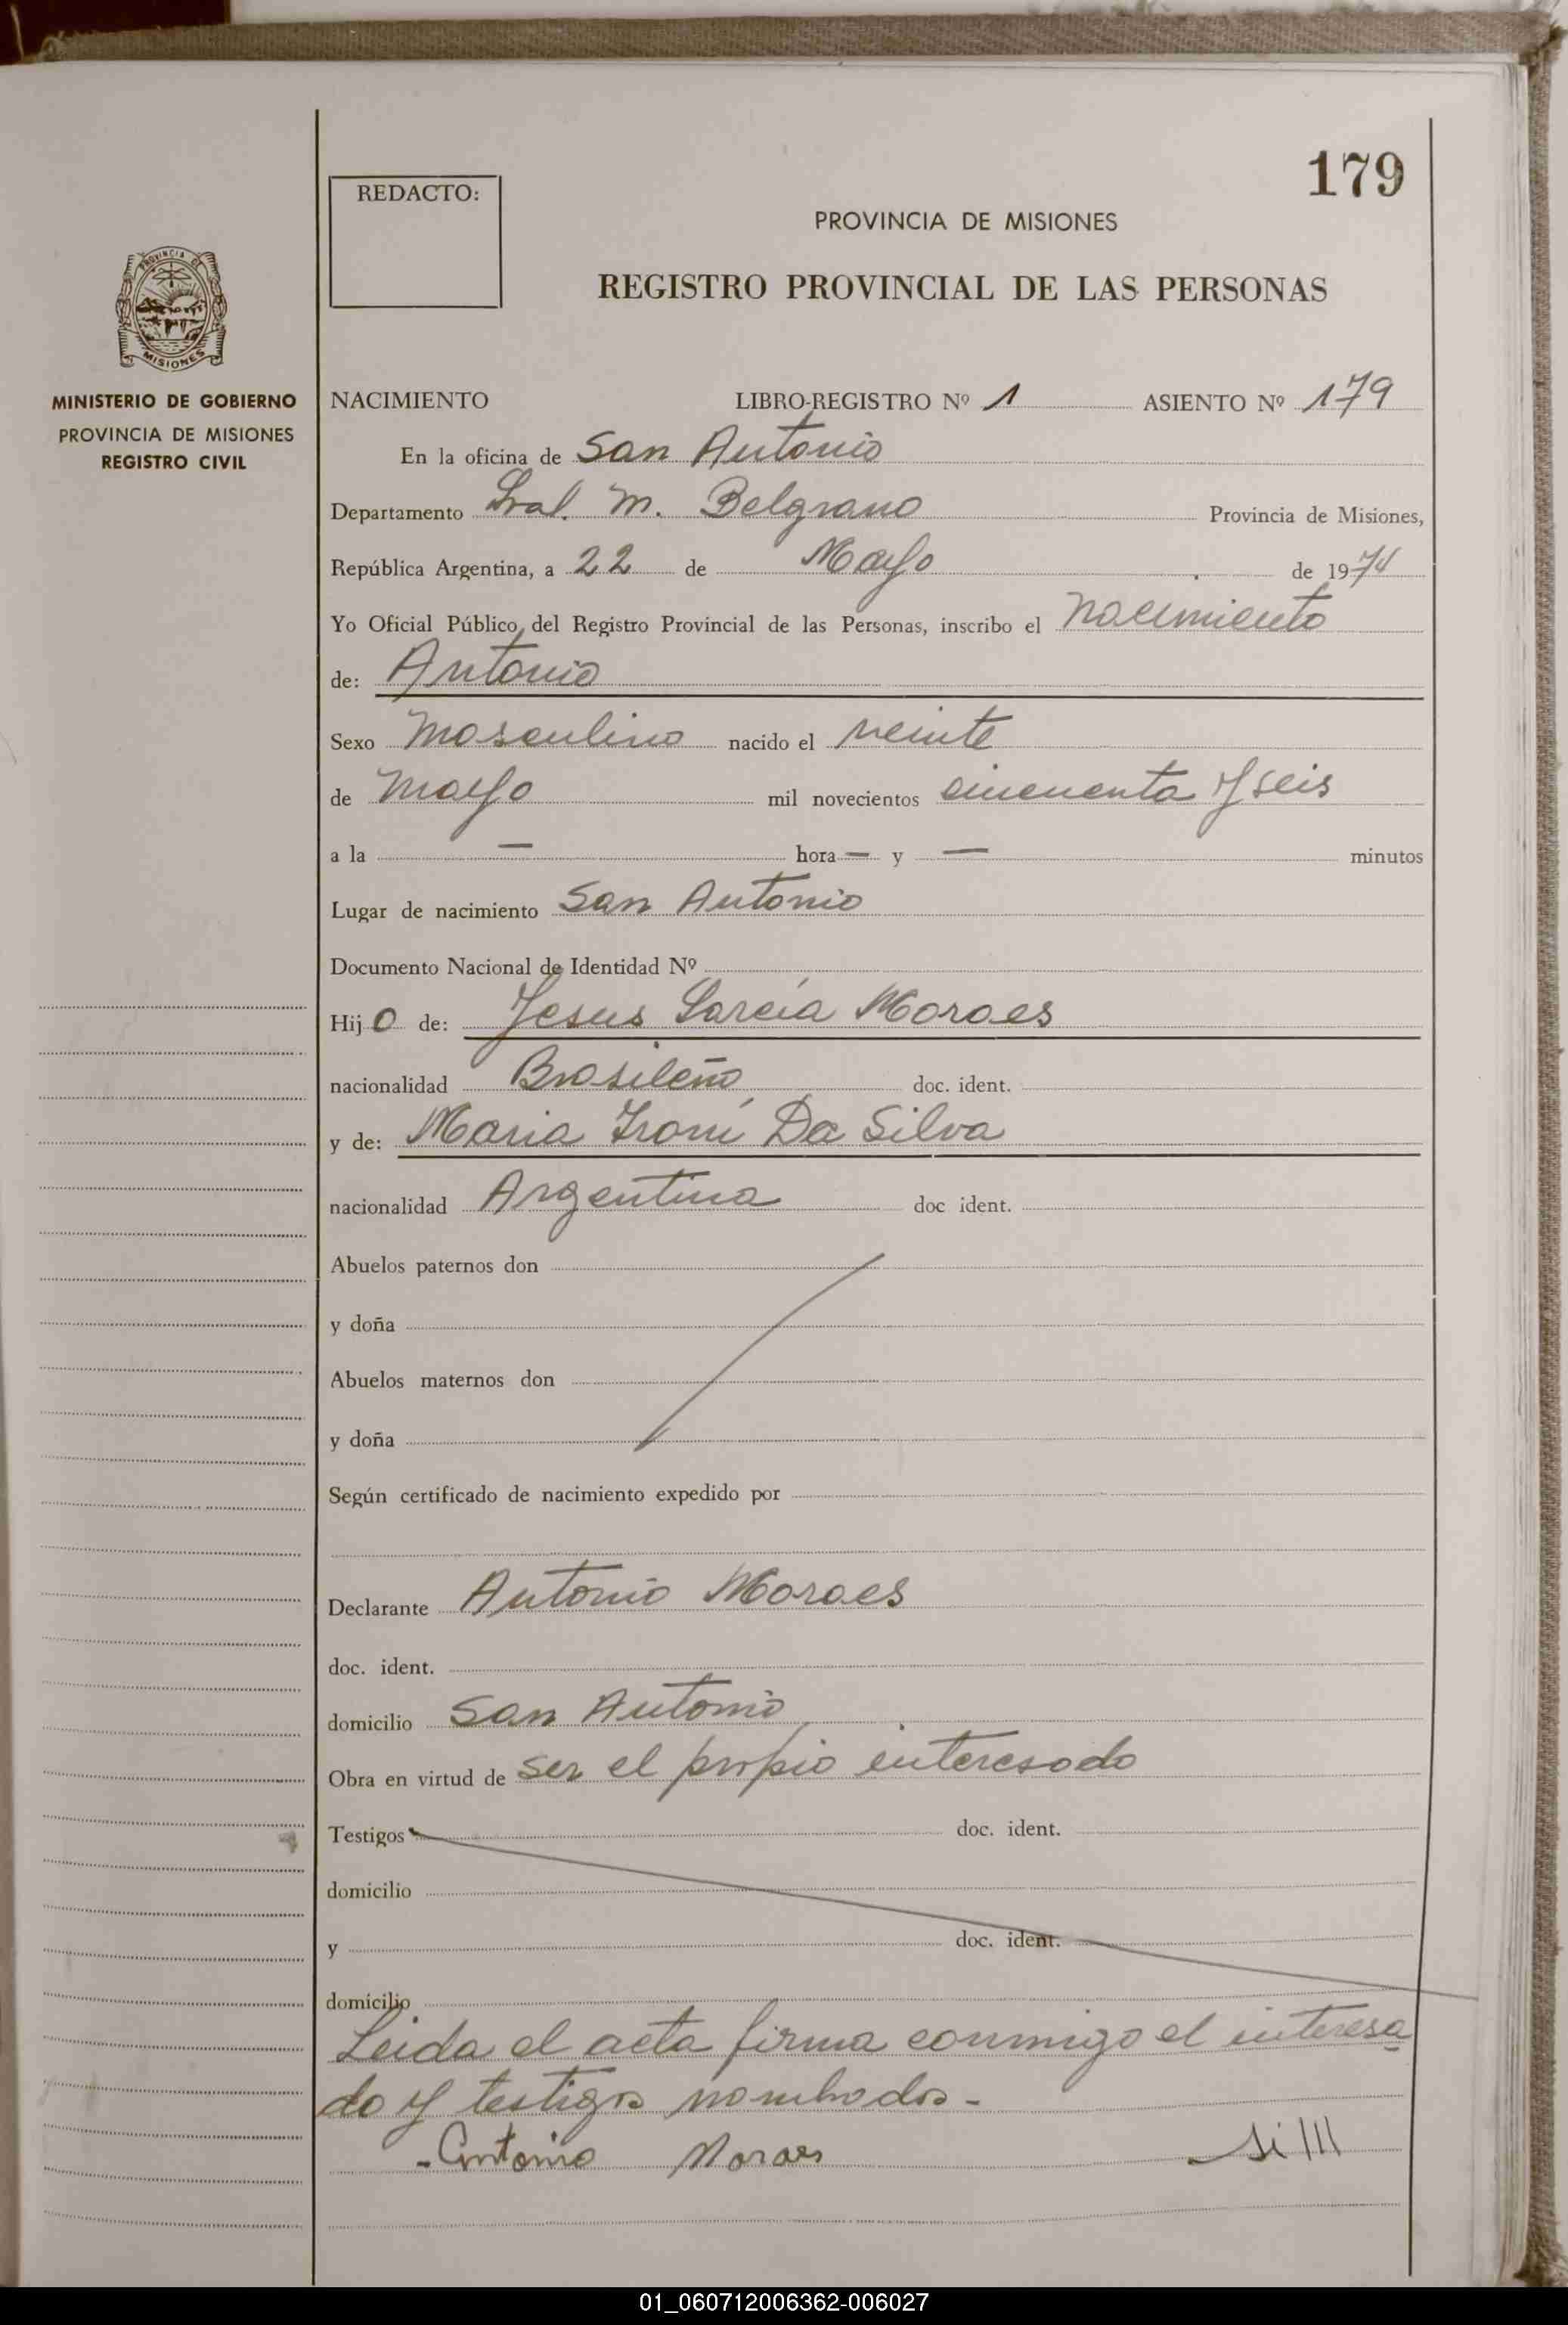 179
REDACTO:
PROVINCIA DE MISIONES
REGISTRO PROVINCIAL DE LAS PERSONAS
PROVINCIA DE
MISIONES
MINISTERIO DE GOBIERNO
PROVINCIA DE MISIONES
REGISTRO CIVIL
NACIMIENTO LIBRO-REGISTRO Nº 1 ASIENTO Nº 179
En la oficina de San Antonio
Departamento Gral. M. Belgrano Provincia de Misiones,
República Argentina, a 22 de Mayo de 1974
Yo Oficial Público, del Registro Provincial de las Personas, inscribo el nacimiento
de: Antonio
Sexo Masculino nacido el veinte
de Mayo mil novecientos cincuenta y seis
a la — hora — y — minutos
Lugar de nacimiento San Antonio
Documento Nacional de Identidad Nº
Hijo de: Jesus García Moraes
nacionalidad Brasileño doc. ident.
y de: Maria Ironí Da Silva
nacionalidad Argentina doc ident.
Abuelos paternos don
y doña
Abuelos maternos don
y doña
Según certificado de nacimiento expedido por
Declarante Antonio Moraes
doc. ident.
domicilio San Antonio
Obra en virtud de ser el propio interesado
Testigos doc. ident.
domicilio
y doc. ident.
domicilio
Leida el acta firma conmigo el interesa
do y testigos nombados-
- Antonio Moraes
01_060712006362-006027